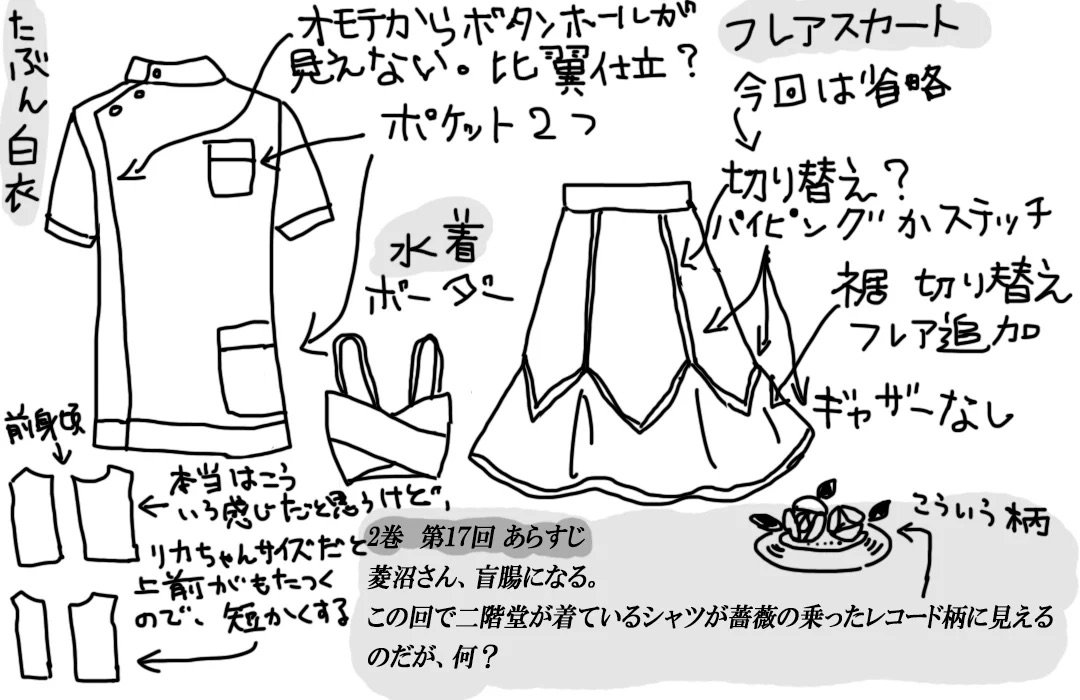 たぶん白衣
オモテからボタンホールが
見えない。比翼仕立？
ポケット2つ
フレアスカート
今回は省略
切り替え？
パイピングかステッチ
裾 切り替え
フレア追加
ギャザーなし
水着
ボーダー
前身頃
本当はこう
いう感じだと思うけど、
リカちゃんサイズだと
上前がもたつく
ので、短かくする
こういう柄
2巻 第17回 あらすじ
菱沼さん、盲腸になる。
この回で二階堂が着ているシャツが薔薇の乗ったレコード柄に見える
のだが、何？